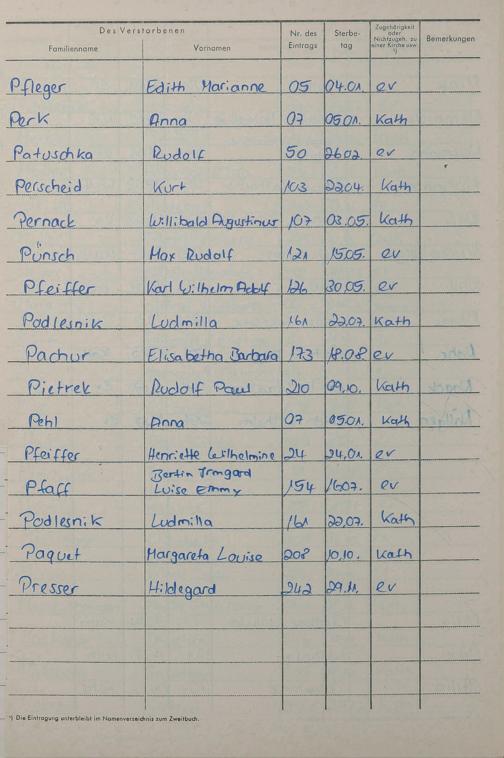 Des Verstorbenen
Familienname Vornamen Nr. des Eintrags Sterbe-tag Zugehörigkeit oder Nichtzugeh. zu einer Kirche usw. ¹) Bemerkungen
Pfleger Edith Marianne 05 04.01. ev
Perk Anna 07 05.01. Kath
Patuschka Rudolf 50 26.02. ev
Perscheid Kurt 103 22.04. Kath
Pernack Willibald Augustinus 107 03.05. Kath
Pünsch Max Rudolf 121 15.05. ev
Pfeiffer Karl Wilhelm Adolf 126 30.05. ev
Podlesnik Ludmilla 161 22.07. Kath
Pachur Elisabetha Barbara 173 18.08 ev
Pietrek Rudolf Paul 210 09.10. Kath
Pehl Anna 07 05.01. Kath
Pfeiffer Henriette Wilhelmine 24 24.01. ev
Bertin Irmgard
Pfaff Luise Emmy 154 16.07. ev
Podlesnik Ludmilla 161 22.07. Kath
Paquet Margareta Louise 208 10.10. Kath
Presser Hildegard 242 29.11. ev
¹) Die Eintragung unterbleibt im Namenverzeichnis zum Zweitbuch.